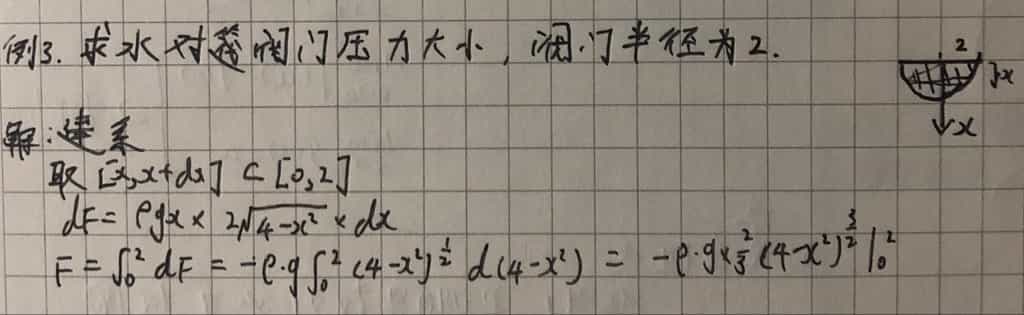 例3. 求水对阀门压力大小，阀门半径为2.
2
}x
x
解:建系
取 [x,x+dx] ⊂ [0,2]
dF = ρgx × 2√(4-x²) × dx
F = ∫₀² dF = -ρ·g ∫₀² (4-x²)^(1/2) d(4-x²) = -ρ·g × 2/3 (4-x²)^(3/2) |₀²